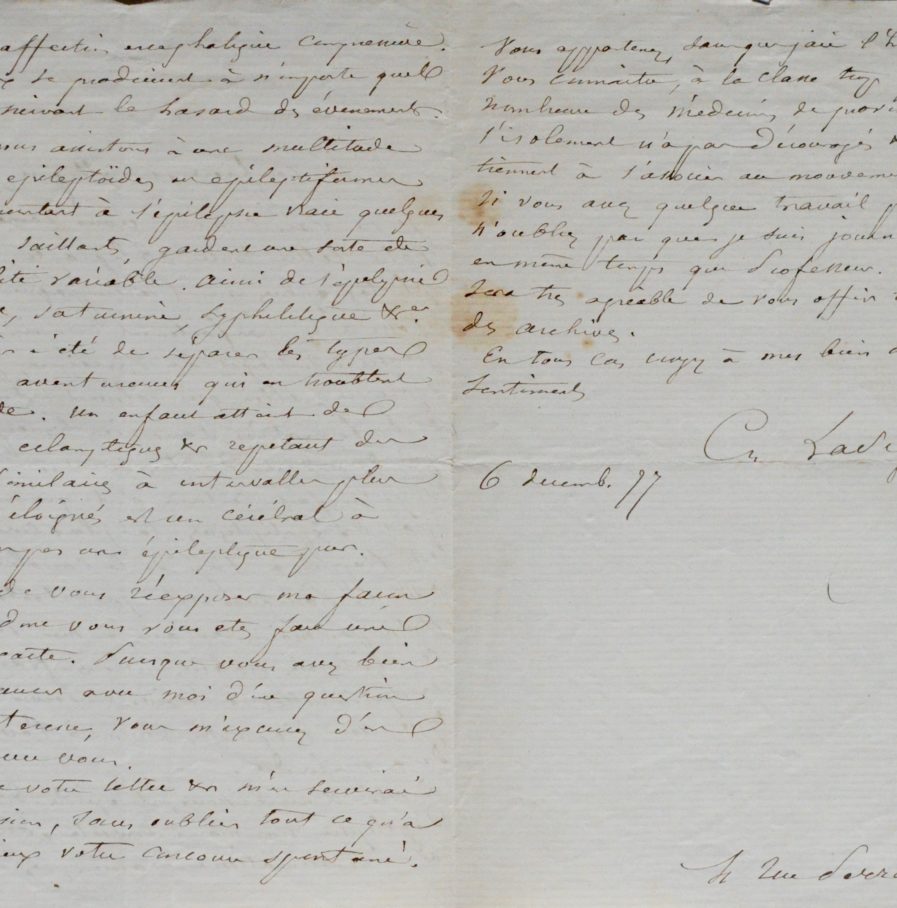 affection encephalique congénère.
se produisent à n'importe quel
suivant le hasard des événements.
nous assistons à une multitude
epileptoïdes ou épileptiformes
à l'épilepsie vraie quelques
saillants, gardent une sorte de
lité variable. Ainsi de l'épilepsie
saturnine, syphilitique &
été de séparer les types
qui en troublent
de. Un enfant atteint de
eclamptiques & repetant des
similaires à intervalles plus
éloignés est un cérébral à
épileptique pur.
de vous réexposer ma façon
dont vous vous etes fait une
Puisque vous avez bien
avec moi d'une question
vous m'excusez d'en
vous.
votre lettre & m'en servirai
sion, sans oublier tout ce qu'a
eux votre concours spontané.
Vous appartenez, sans que j'aie l'h
vous connaitre, à la classe trop
nombreuse des médecins de prov
l'isolement n'a pas découragés
tiennent à s'associer au mouveme
Si vous avez quelque travail p
n'oubliez pas que je suis journ
en même temps que Professeur.
sera tres agreable de vous offrir
des archives.
En tous cas croyez à mes bien
sentiments
Ch Las
6 decemb. 77
rue